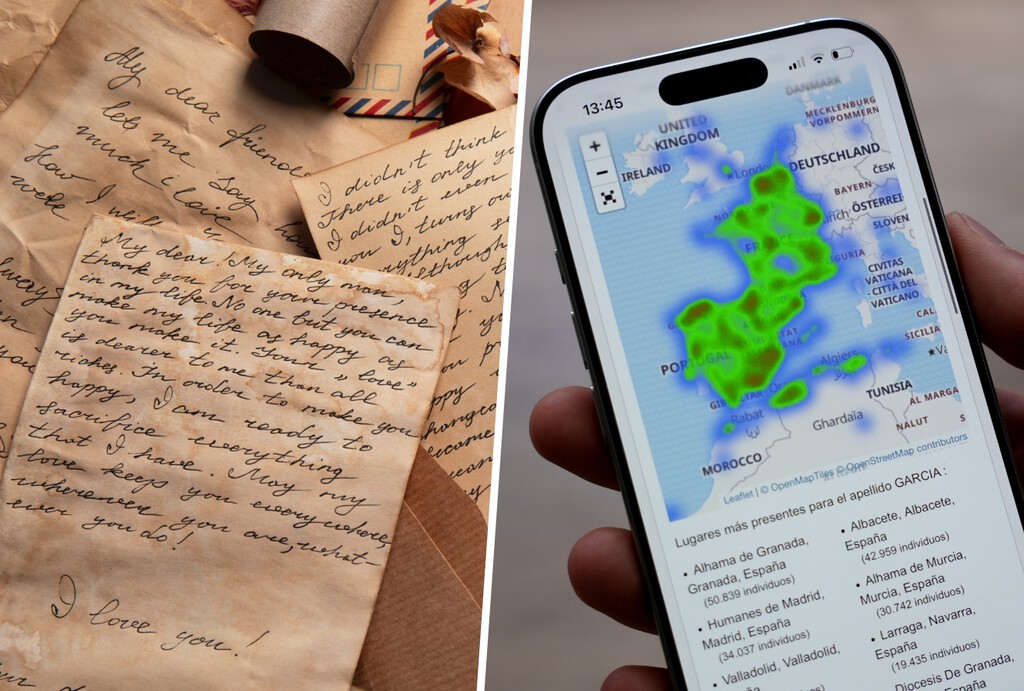 My dear friend
let me say
much i love
How I
week
I didn't think
There is only
I didn't even
you I, turns ou
erything s
My dear! My only man,
thank you for your presence
in my life. No one but you can
make my life as happy as
you make it. Your "love"
is dearer to me than all
riches. In order to make you
happy, I am ready to
sacrifice everything
that I have. May my
love keeps you everywhere,
wherever you are, what-
ever you do!
I love you!
13:45
+
−
DANMARK
MECKLENBURG
VORPOMMERN
UNITED
KINGDOM
IRELAND
DEUTSCHLAND
ČESK
BAYERN
ÖSTERREI
SLOVEN
IGURIA
CIVITAS
VATICANA
- CITTÀ DEL
VATICANO
CAL
SICILIA
Algiers
TUNISIA
Rabat
Ghardaïa
AL MARGA
NALUT
MOROCCO
Leaflet | © OpenMapTiles © OpenStreetMap contributors
Lugares más presentes para el apellido GARCIA :
• Alhama de Granada,
Granada, España
(50.839 individuos)
• Humanes de Madrid,
Madrid, España
(34.037 individuos)
• Valladolid, Valladolid,
• Albacete, Albacete,
España
(42.959 individuos)
• Alhama de Murcia,
Murcia, España
(30.742 individuos)
• Larraga, Navarra,
España
(19.435 individuos)
Diocesis De Granada,